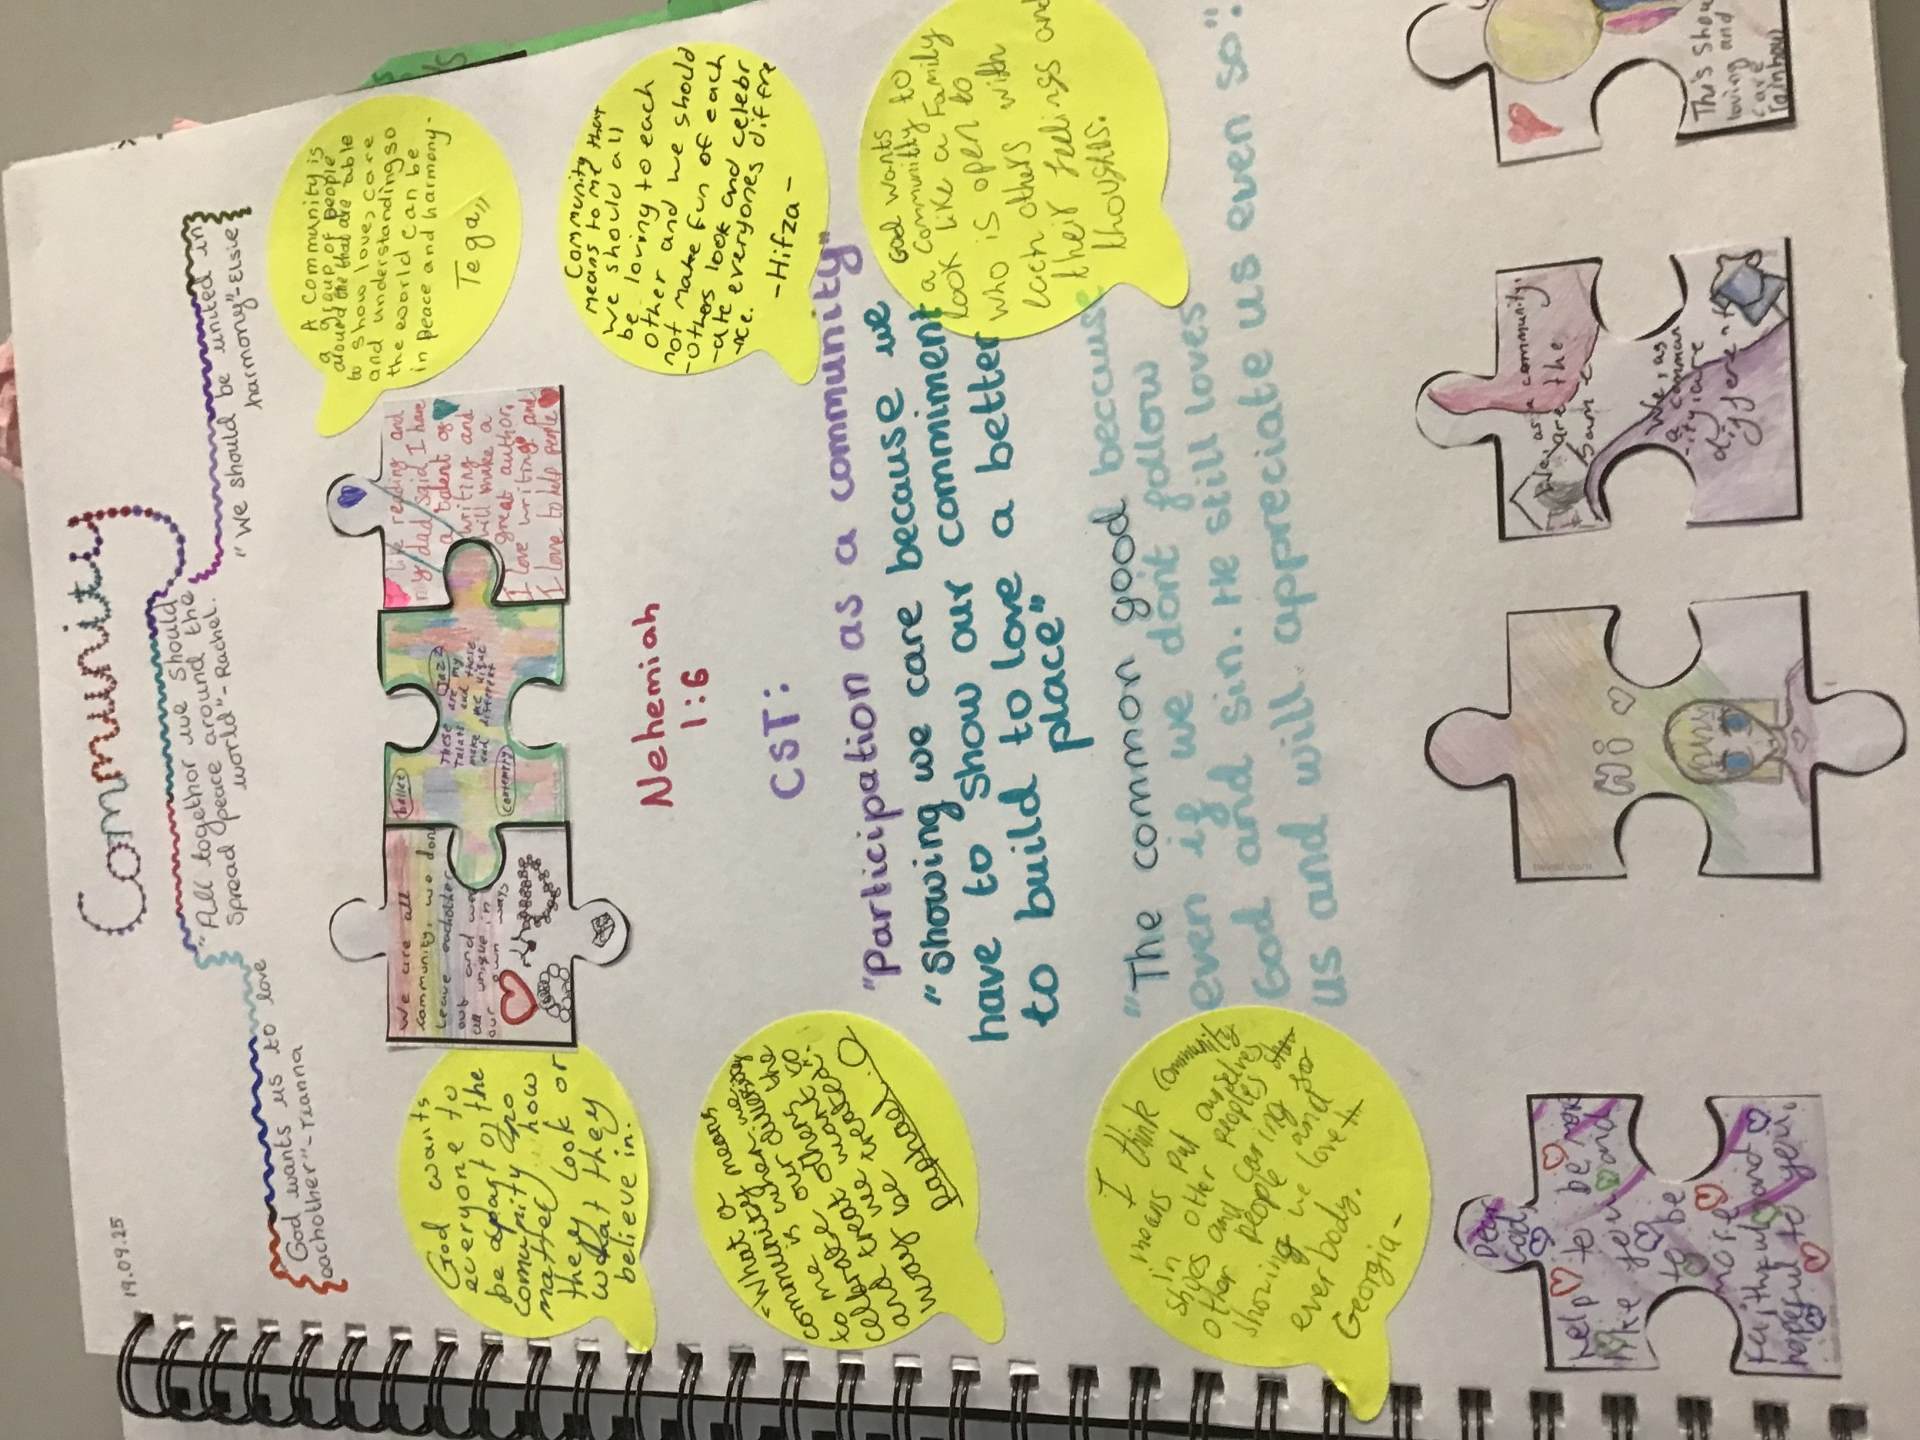 19.09.25
Community
"God wants us to love
eachother"-Teanna
"All together we should
spread peace around the
world"-Rachel.
"We should be united in
harmony"-Elsie
God wants
everyone to
be apart of the
community no
matter how
they look or
what they
believe in.
We are all
community, we don
Leave eachother
out and we
all unique in
our own ways
ballet
Jazz
These are my
Talents and these
make me unique
and different
I like reading and
my dad said I have
a talent of
writing and
will make a
great author,
I love writing and
I love to help people
A community is
a group of people
around the that are able
to show love, care
and understanding so
the world can be
in peace and harmony.
Tega,,
Nehemiah
1:6
"What a
community means
to me is when we
celebrate our diversity
and treat others the
way we want to
be treated".
Raphael.O
Community
means to me that
we should all
be loving to each
other and we should
not make fun of each
-others look and celebr
-ate everyones differe
-nce.
-Hifza-
CST:
"Participation as a community"
"Showing we care because we
have to show our commiment
to build to love a better
place"
God wants
a community to
look like a family
who is open to
each others with
their feelings and
thoughts.
I think community
means put ourselves
in other peoples
shoes and caring
other people and
showing we love
everbody.
Georgia-
"The common good because
even if we dont follow
God and sin. He still loves
us and will appreciate us even so".
Dear
God,
help to be more
like you and
to be
more
faithful and
hopeful to you.
We, as a community,
are the
same
We, as
a commun
-ity are
different
This show
loving and
care
rainbow